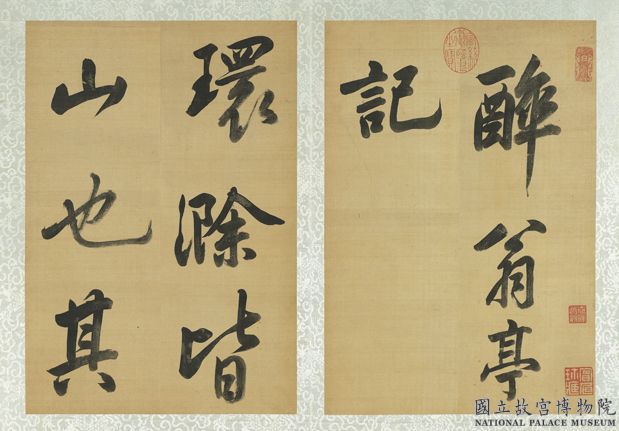 醉翁亭
記
環滁皆
山也其
國立故宮博物院
NATIONAL PALACE MUSEUM